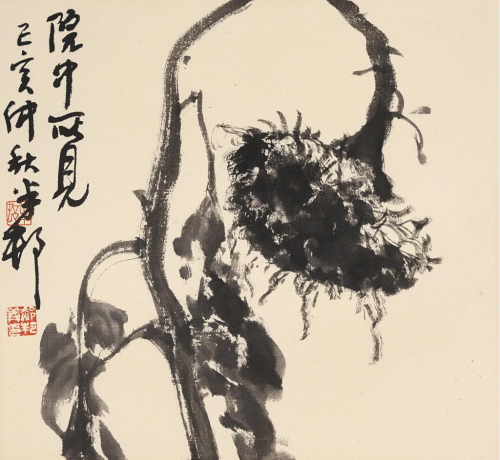 院中所見
己亥仲秋半邨